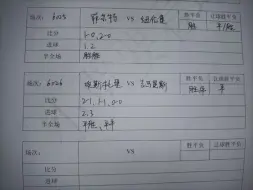 场次: 6025 菲尔特 VS 纽伦堡 胜平负 让球胜平负
胜 平/胜
比分 1-0, 2-0
进球 1.2
半全场 胜胜
场次: 6026 埃斯托里 VS 吉马良斯 胜平负 让球胜平负
胜/平 平
比分 2-1, 1-1, 2-0
进球 2.3
半全场 平胜, 平平
场次: VS 胜平负 让球胜平负
比分
进球
半全场